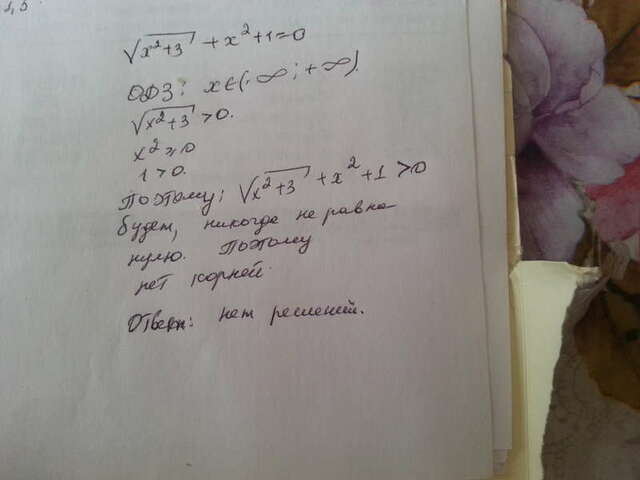 √x²+3 + x²+1=0
ОДЗ: x∈(-∞; +∞).
√x²+3 >0.
x²≥0
1>0.
Поэтому: √x²+3 + x²+1>0
будет, никогда не равна
нулю. Поэтому
нет корней.
Ответ: нет решений.